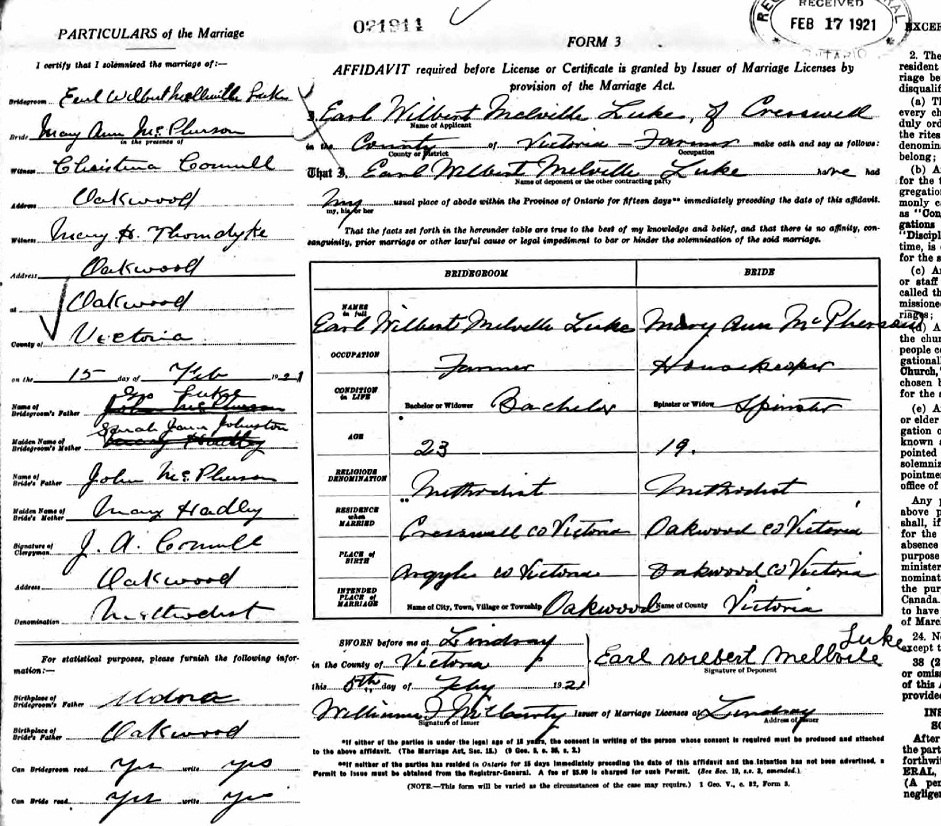 PARTICULARS of the Marriage
I certify that I solemnized the marriage of:—
Bridegroom Earl Wilbert Mellville Luke
Bride Mary Ann McPherson
in the presence of
Witness Christina Connell
Address Oakwood
Witness Mary H. Thorndyke
Address Oakwood
at Oakwood
County of Victoria
on the 15 day of Feb 1921
Geo Luke
Name of Bridegroom's Father John McPherson
Sarah Jane Johnston
Maiden Name of Bridegroom's Mother Mary Hadley
Name of Bride's Father John McPherson
Maiden Name of Bride's Mother Mary Hadley
Signature of Clergyman J. A. Connell
Address Oakwood
Denomination Methodist
For statistical purposes, please furnish the following information:—
Birthplace of Bridegroom's Father
Birthplace of Bride's Father Oakwood
Can Bridegroom read Yes write Yes
Can Bride read Yes write Yes
021911
RECEIVED
FEB 17 1921
ONTARIO
FORM 3
AFFIDAVIT required before License or Certificate is granted by Issuer of Marriage Licenses by
provision of the Marriage Act.
I, Earl Wilbert Melville Luke, of Cresswell
Name of Applicant
in the County of Victoria — Farmer make oath and say as follows:
County or District Occupation
That I, Earl Wilbert Melville Luke have had
Name of deponent or the other contracting party
my usual place of abode within the Province of Ontario for fifteen days** immediately preceding the date of this affidavit.
my, his or her
That the facts set forth in the hereunder table are true to the best of my knowledge and belief, and that there is no affinity, con-
sanguinity, prior marriage or other lawful cause or legal impediment to bar or hinder the solemnisation of the said marriage.
BRIDEGROOM BRIDE
NAMES in full Earl Wilbert Melville Luke Mary Ann McPherson
OCCUPATION Farmer Housekeeper
CONDITION in LIFE Bachelor or Widower Bachelor Spinster or Widow Spinster
AGE 23 19.
RELIGIOUS DENOMINATION Methodist Methodist
RESIDENCE when MARRIED Cresswell co Victoria Oakwood co Victoria
PLACE of BIRTH Argyle co Victoria Oakwood co Victoria
INTENDED PLACE of MARRIAGE Name of City, Town, Village or Township Oakwood Name of County Victoria
SWORN before me at Lindsay
in the County of Victoria
this 5th day of Feby 1921
Earl Wilbert Mellvile Luke
Signature of Deponent
Issuer of Marriage Licenses at Lindsay
Signature of Issuer Address of Issuer
*If either of the parties is under the legal age of 18 years, the consent in writing of the person whose consent is required must be produced and attached
to the above affidavit. (The Marriage Act, Sec. 15.) (9 Geo. 5, c. 35, s. 2.)
**If neither of the parties has resided in Ontario for 15 days immediately preceding the date of this affidavit and the intention has not been advertised, a
Permit to Issue must be obtained from the Registrar-General. A fee of $5.00 is charged for such Permit. (See Sec. 19, s.s. 3, amended.)
(NOTE.—This form will be varied as the circumstances of the case may require.) 1 Geo. V., c. 32, Form 3.